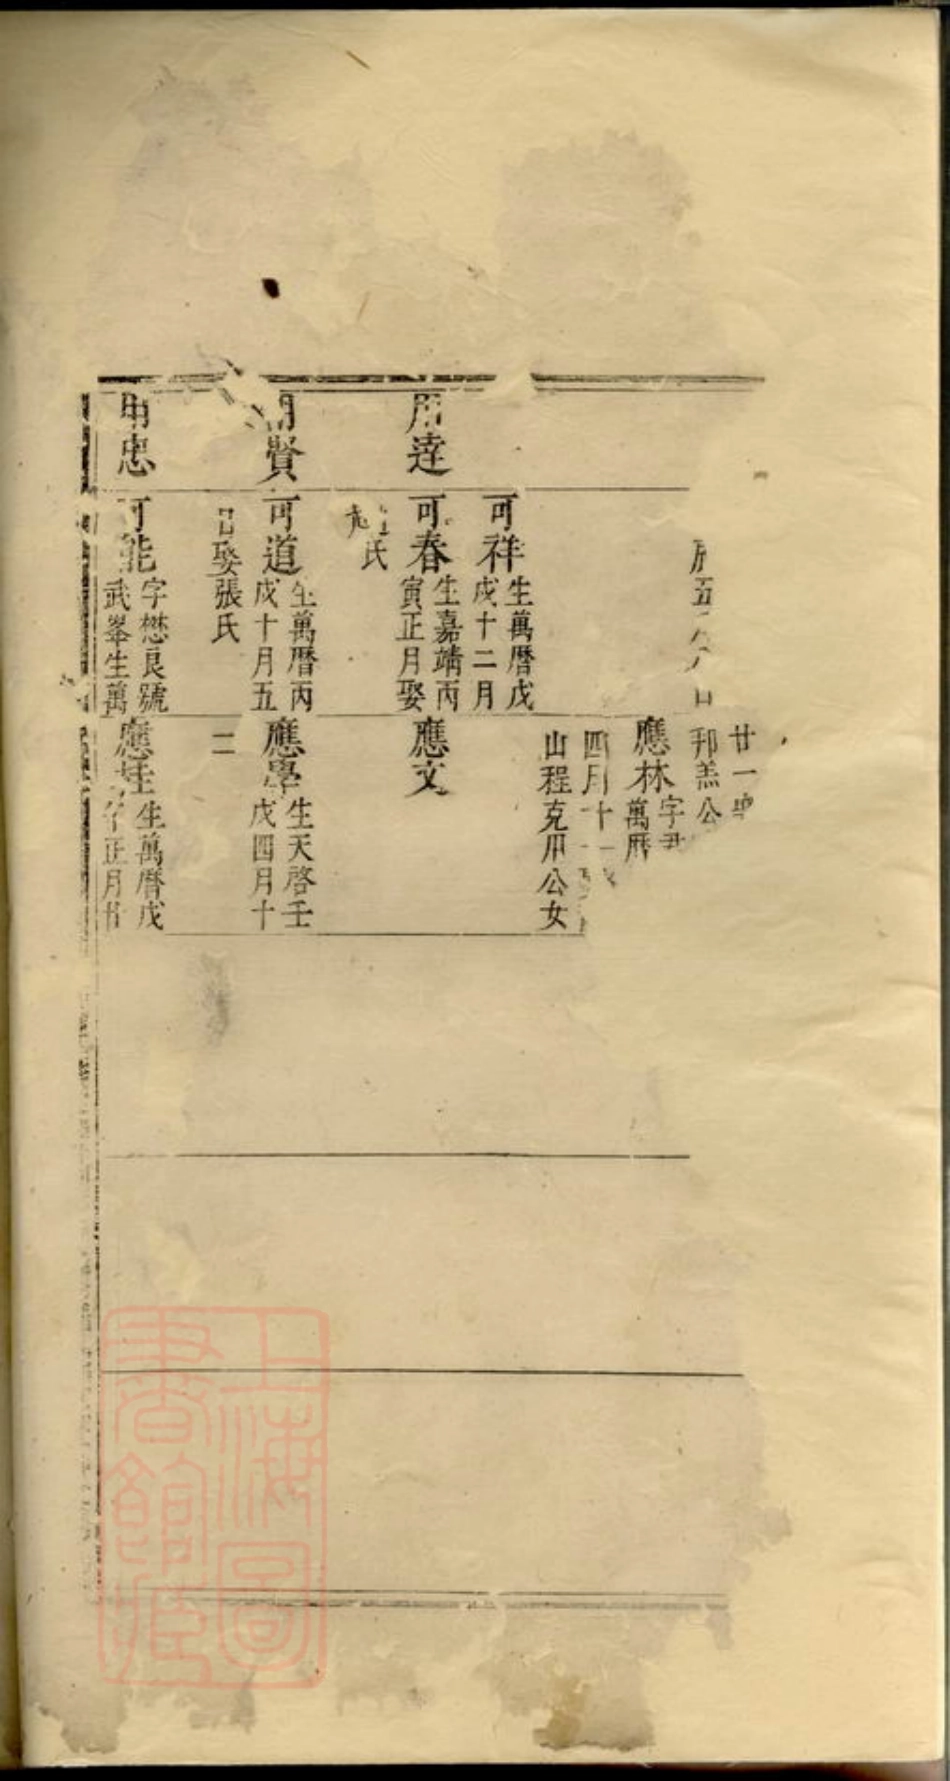 用達
賢
忠
五
可祥
生萬曆戊
戌十二月
可春
生嘉靖丙
寅正月娶
氏
可道
生萬曆丙
戌十月五
娶張氏
可能
字懋良號
武峯生萬
廿一
邦羔公
應林
字尹
萬曆
四月十一
山程克用公女
應文
應學
生天啓壬
戌四月十
二
應
生萬曆戊
正月廿
上海圖
書館藏